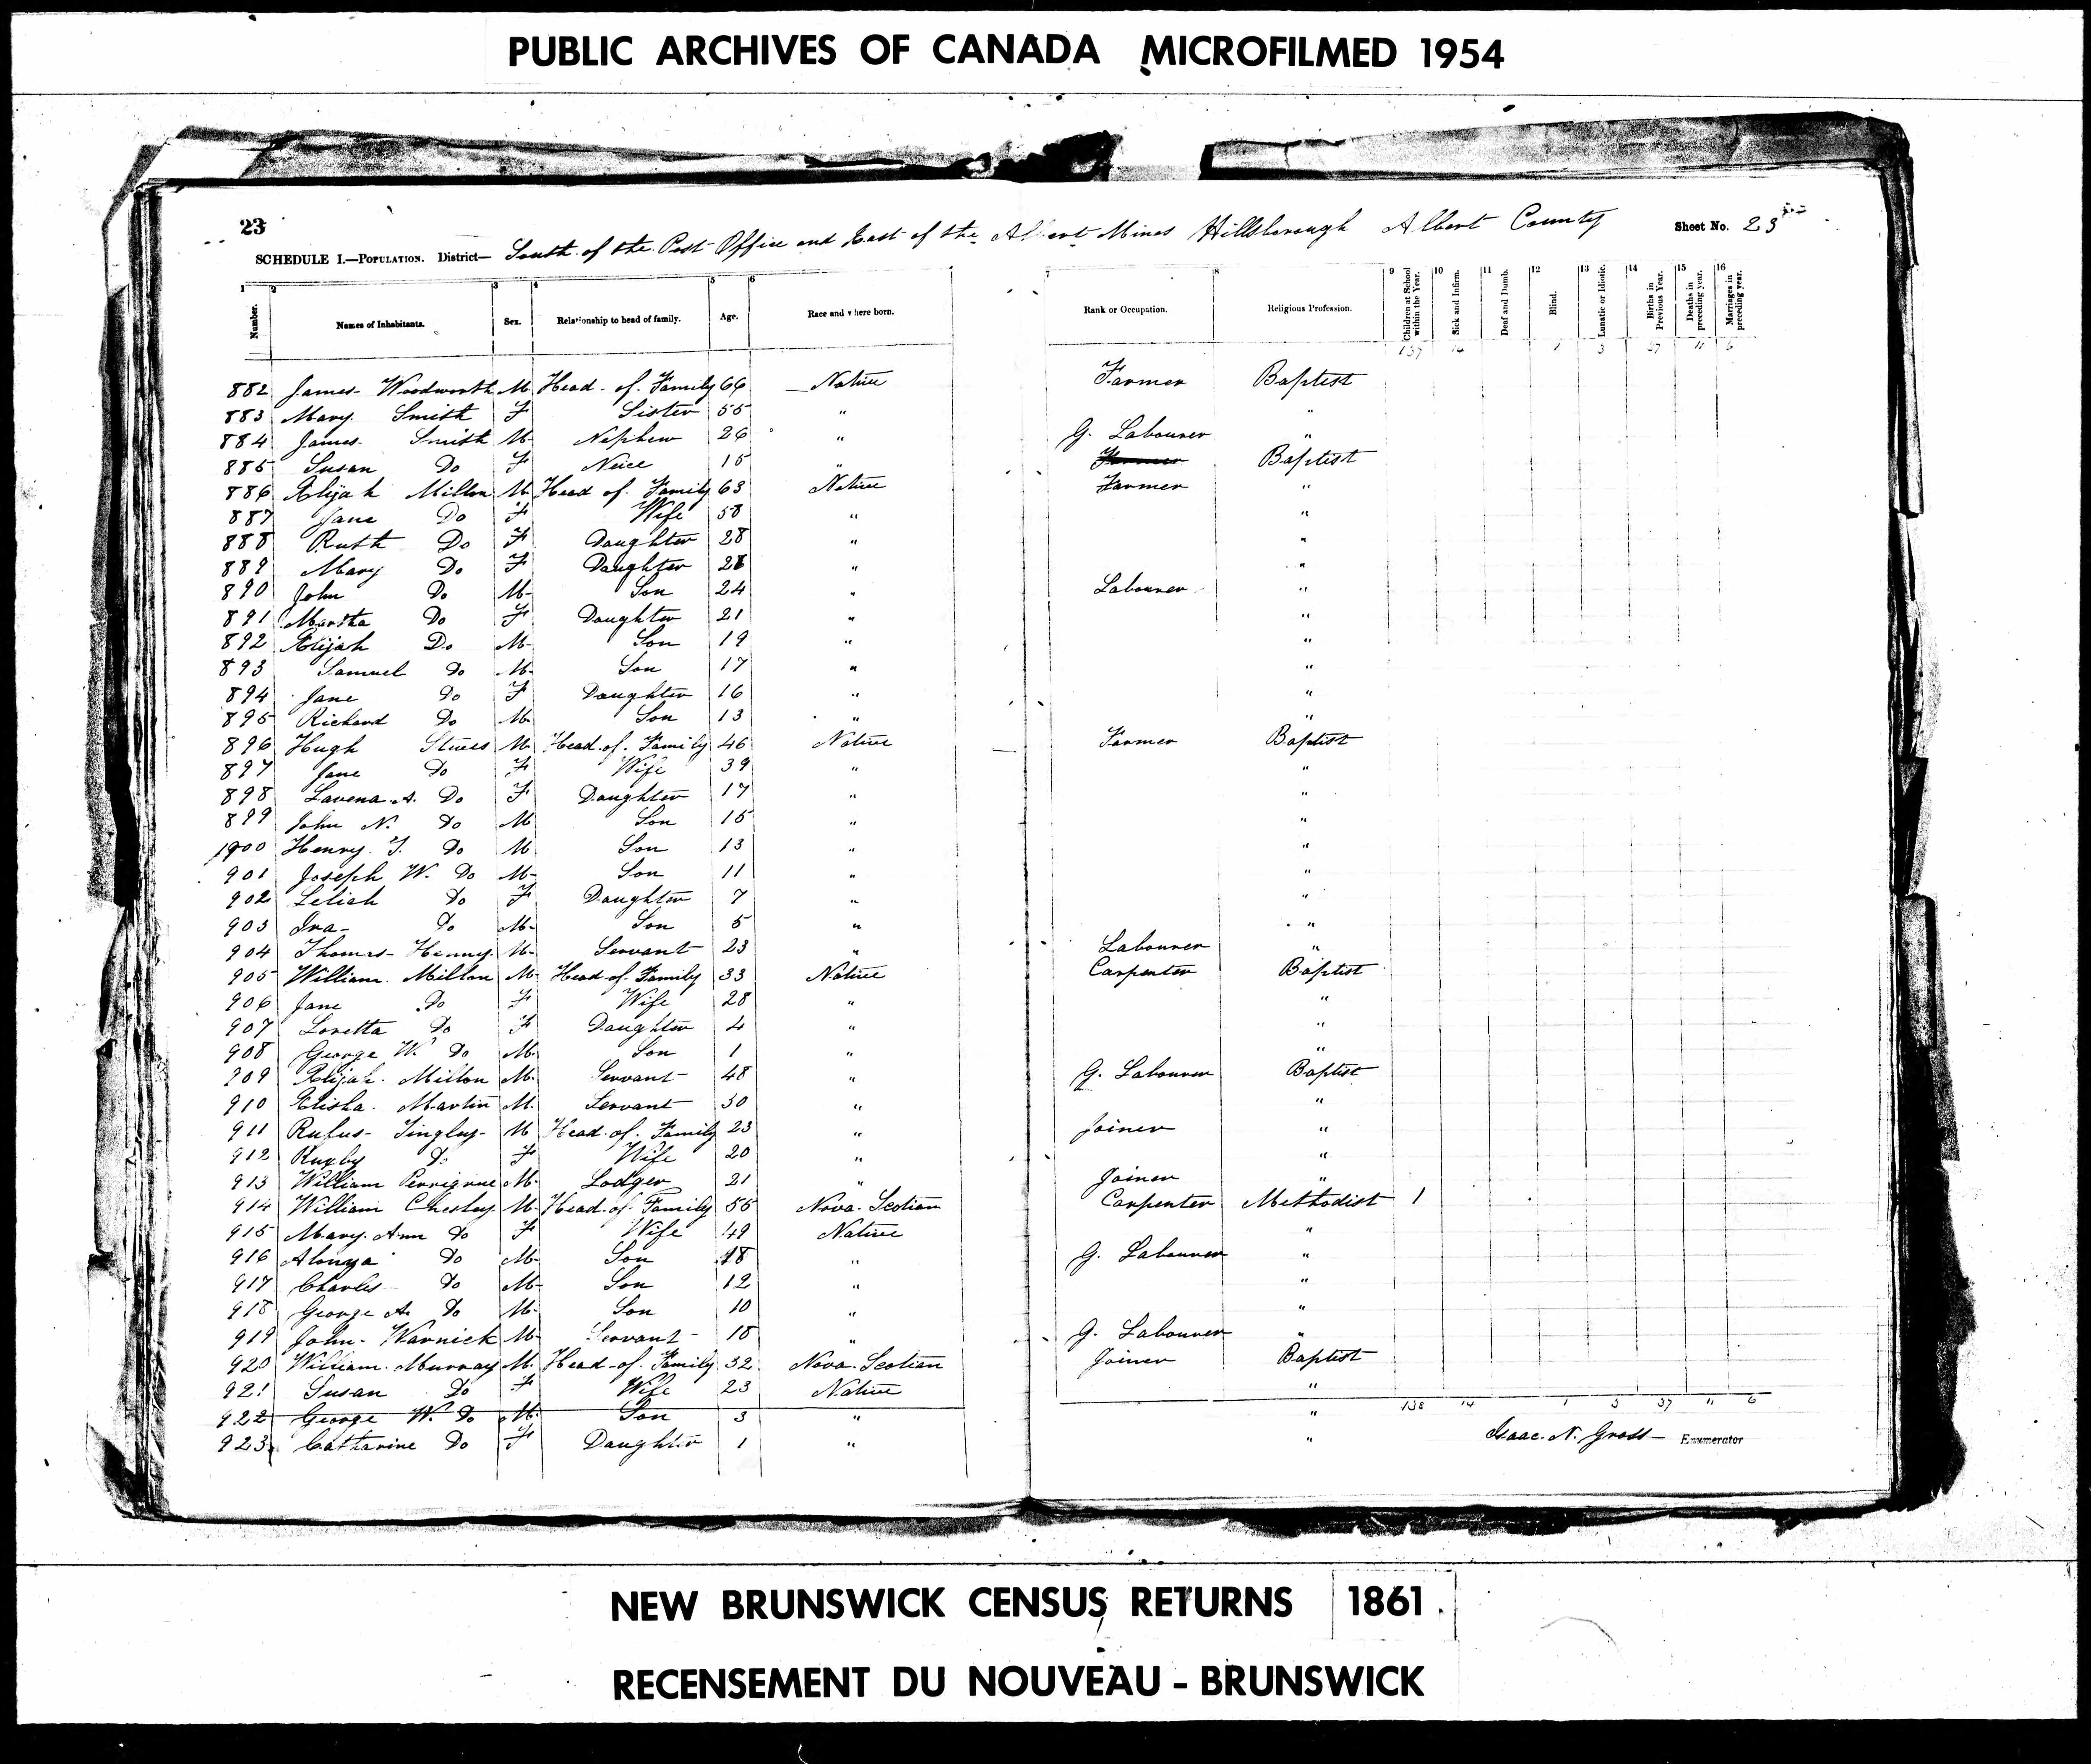 PUBLIC ARCHIVES OF CANADA MICROFILMED 1954
23
SCHEDULE I.—POPULATION. District— South of the Post Office and East of the Albert Mines Hillsborough Albert County Sheet No. 23
1 2 3 4 5 6 7 8 9 10 11 12 13 14 15 16
Number. Names of Inhabitants. Sex. Relationship to head of family. Age. Race and where born. Rank or Occupation. Religious Profession. Children at School within the Year. Sick and Infirm. Deaf and Dumb. Blind. Lunatic or Idiotic. Births in Previous Year. Deaths in preceding year. Marriages in preceding year.
137 14 1 3 37 11 6
882 James Woodworth M Head of Family 66 Native Farmer Baptist
883 Mary Smith F Sister 55 " "
884 James Smith M Nephew 26 " G. Labourer "
885 Susan Do F Neice 15 " Farmer Baptist
886 Elijah Milton M Head of Family 63 Native Farmer "
887 Jane Do F Wife 58 " "
888 Ruth Do F Daughter 28 " "
889 Mary Do F Daughter 26 " "
890 John Do M Son 24 " Labourer "
891 Martha Do F Daughter 21 " "
892 Elijah Do M Son 19 " "
893 Samuel Do M Son 17 " "
894 Jane Do F Daughter 16 " "
895 Richard Do M Son 13 " "
896 Hugh Stives M Head of Family 46 Native Farmer Baptist
897 Jane Do F Wife 39 " "
898 Lavena A. Do F Daughter 17 " "
899 John N. Do M Son 15 " "
1900 Henry T. Do M Son 13 " "
901 Joseph W. Do M Son 11 " "
902 Leliah Do F Daughter 7 " "
903 Ira Do M Son 5 " "
904 Thomas Henny M Servant 23 " Labourer "
905 William Milton M Head of Family 33 Native Carpenter Baptist
906 Jane Do F Wife 28 " "
907 Loretta Do F Daughter 4 " "
908 George W. Do M Son 1 " "
909 Elijah Milton M Servant 48 " G. Labourer Baptist
910 Elisha Martin M Servant 30 " "
911 Rufus Tingley M Head of Family 23 " Joiner "
912 Ruxby Do F Wife 20 " "
913 William Perrigrine M Lodger 21 " Joiner "
914 William Chesley M Head of Family 55 Nova Scotian Carpenter Methodist 1
915 Mary Ann Do F Wife 49 Native "
916 Alonza Do M Son 18 " G. Labourer "
917 Charles Do M Son 12 " "
918 George A. Do M Son 10 " "
919 John Warnick M Servant 18 " G. Labourer "
920 William Murray M Head of Family 32 Nova Scotian Joiner Baptist
921 Susan Do F Wife 23 Native "
922 George W. Do M Son 3 " " 138 14 1 3 37 11 6
923 Catharine Do F Daughter 1 " " Isaac N. Gross Enumerator
NEW BRUNSWICK CENSUS RETURNS 1861
RECENSEMENT DU NOUVEAU - BRUNSWICK